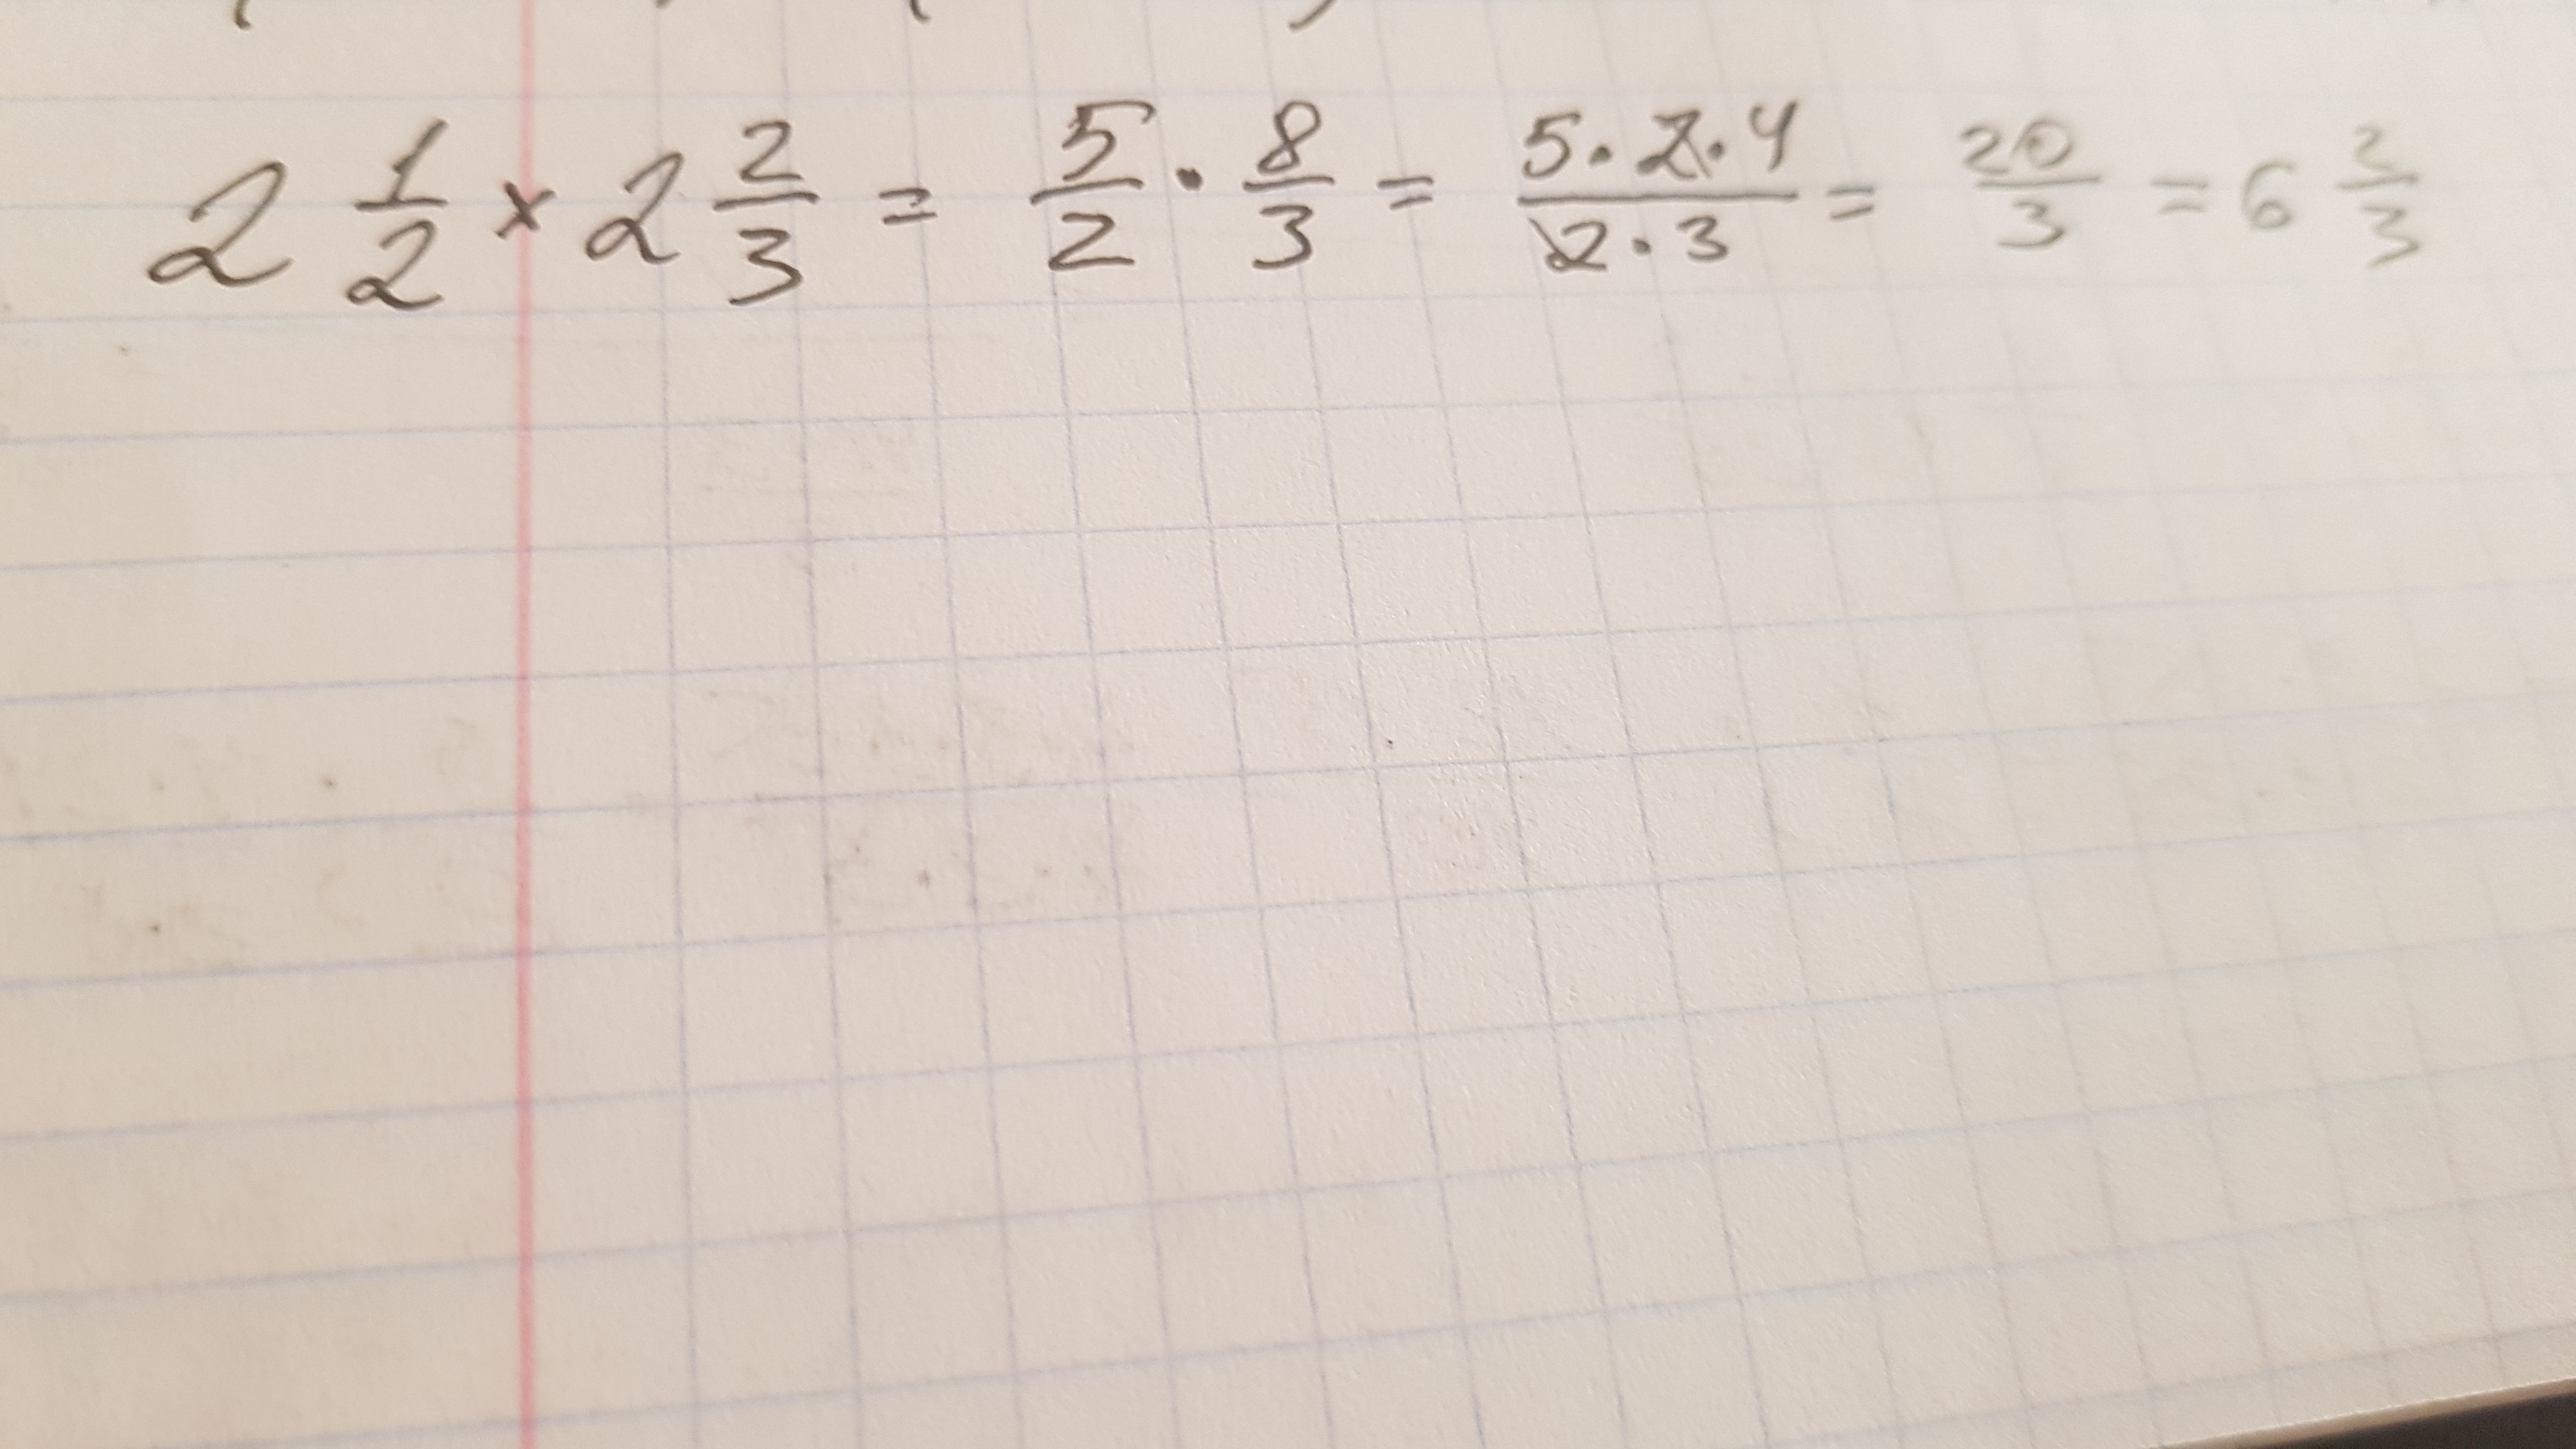 2 1/2 × 2 2/3 = 5/2 · 8/3 = 5·2·4/2·3 = 20/3 = 6 2/3